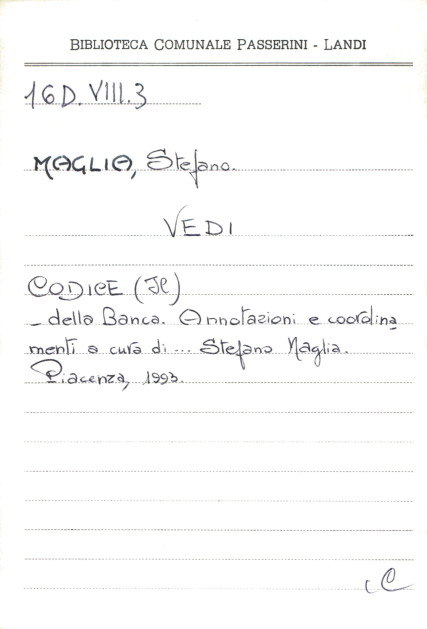 BIBLIOTECA COMUNALE PASSERINI - LANDI
16D.VIII.3
MAGLIA, Stefano.
VEDI
CODICE (Il)
- della Banca. Annotazioni e coordina
menti a cura di ... Stefano Maglia.
Piacenza, 1993.